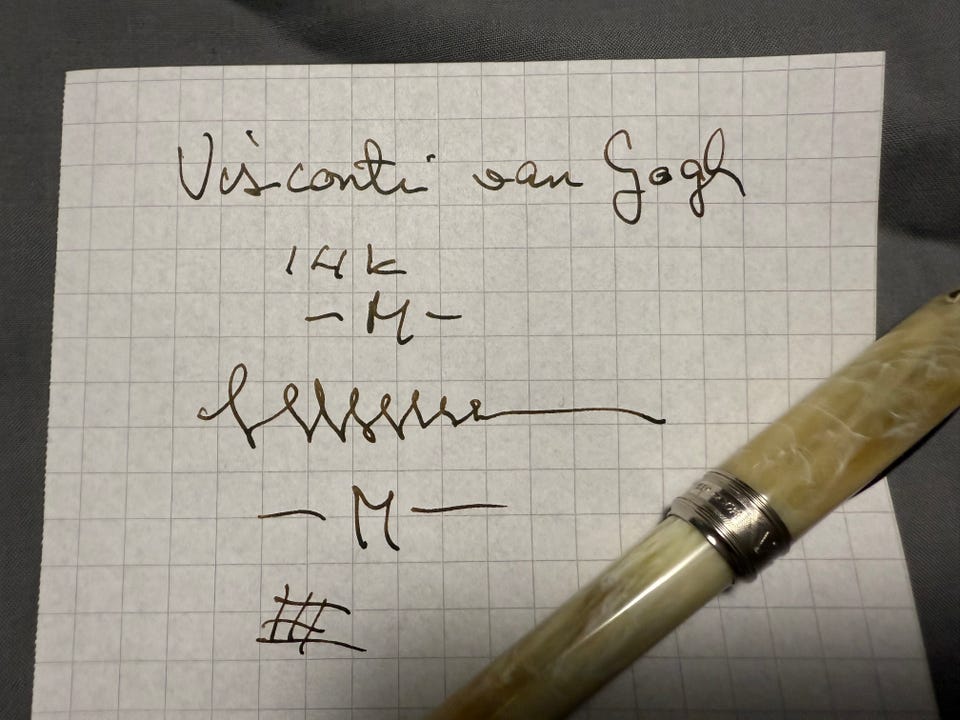 Visconti van Gogh
14k
- M -
- M -